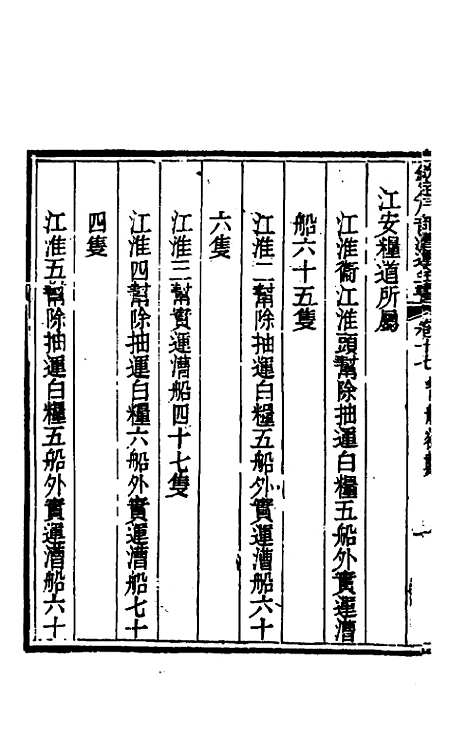 江安糧道所屬
江淮衞江淮頭幫除抽運白糧五船外實運漕
船六十五隻
江淮二幫除抽運白糧五船外實運漕船六十
六隻
江淮三幫實運漕船四十七隻
江淮四幫除抽運白糧六船外實運漕船七十
四隻
江淮五幫除抽運白糧五船外實運漕船六十